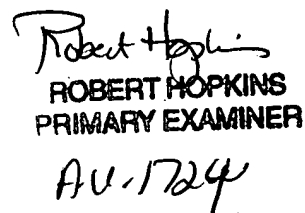 Robert Hopkins
ROBERT HOPKINS
PRIMARY EXAMINER
AU-1724